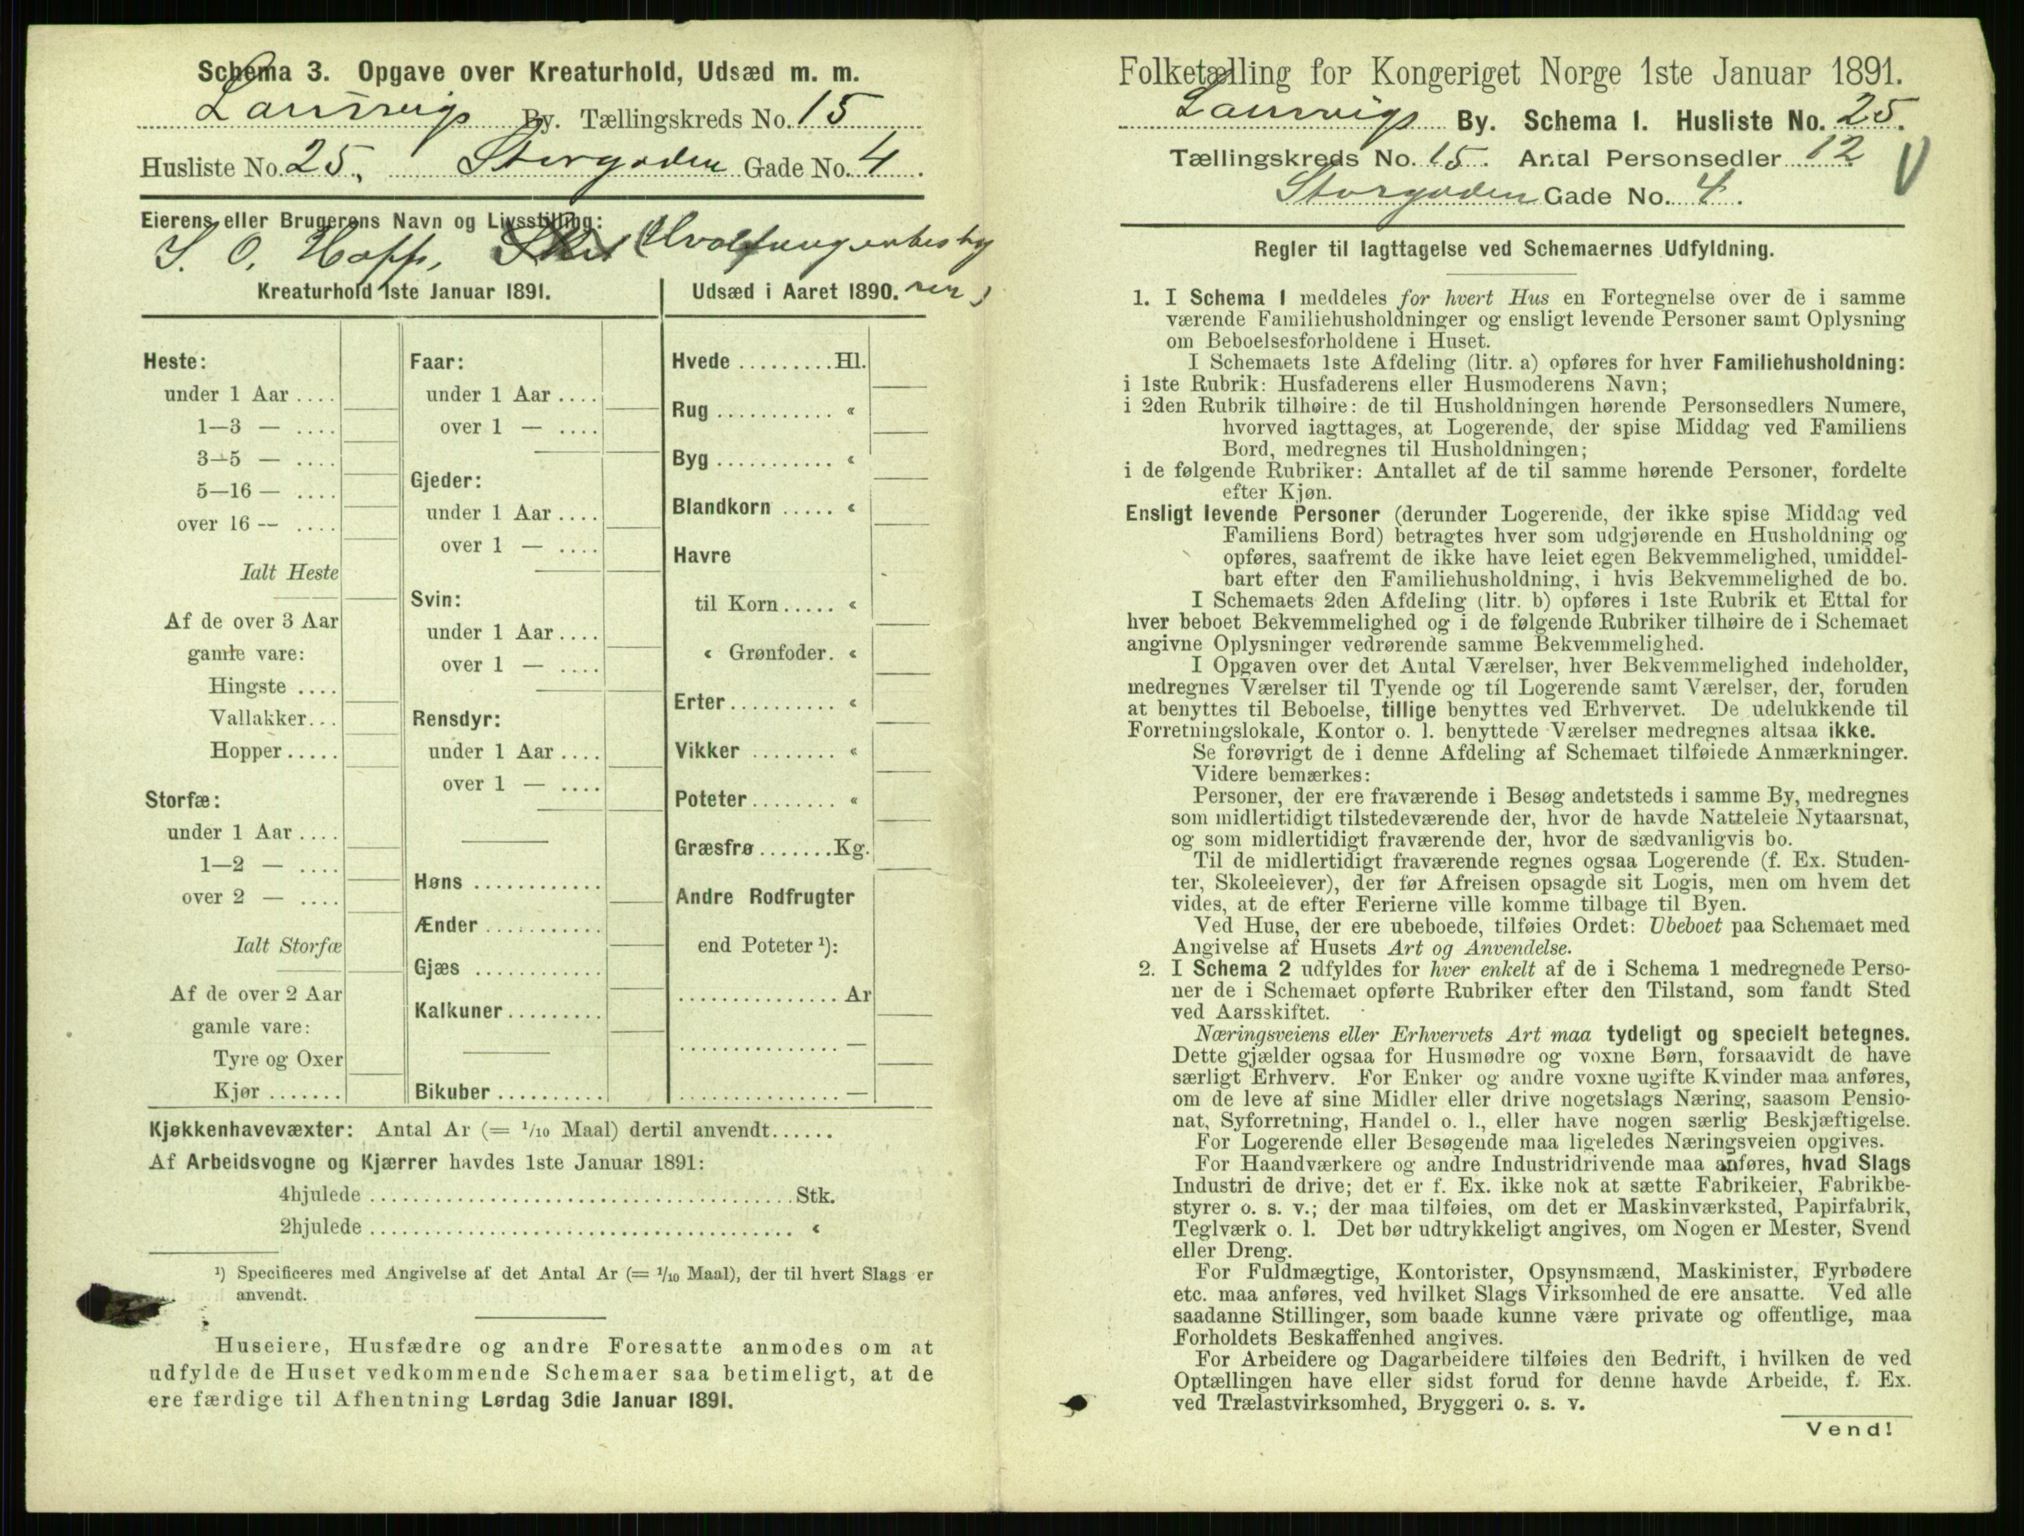 Schema 3. Opgave over Kreaturhold, Udsæd m. m.
Laurvigs By. Tællingskreds No. 15
Husliste No. 25, Storgaden Gade No. 4.
Eierens eller Brugerens Navn og Livsstilling:
S. O. Hoff, (Hvalfangerbesty
rer)
Kreaturhold 1ste Januar 1891.
Heste:
under 1 Aar ....
1—3 — ....
3—5 — ....
5—16 — ....
over 16 — ....
Ialt Heste
Af de over 3 Aar
gamle vare:
Hingste ....
Vallakker...
Hopper.....
Storfæ:
under 1 Aar ....
1—2 — ....
over 2 — ....
Ialt Storfæ
Af de over 2 Aar
gamle vare:
Tyre og Oxer
Kjør .......
Faar:
under 1 Aar ....
over 1 — ....
Gjeder:
under 1 Aar ....
over 1 — ....
Svin:
under 1 Aar ....
over 1 — ....
Rensdyr:
under 1 Aar ....
over 1 — ....
Høns ............
Ænder ...........
Gjæs ............
Kalkuner .........
Bikuber ..........
Udsæd i Aaret 1890.
Hvede .........Hl.
Rug ........... «
Byg ........... «
Blandkorn ..... «
Havre
til Korn ..... «
« Grønfoder. «
Erter ......... «
Vikker ........ «
Poteter ........ «
Græsfrø .......Kg.
Andre Rodfrugter
end Poteter ¹):
............... Ar
............... —
............... —
Kjøkkenhavevæxter: Antal Ar (= 1/10 Maal) dertil anvendt......
Af Arbeidsvogne og Kjærrer havdes 1ste Januar 1891:
4hjulede ........................................ Stk.
2hjulede ........................................ «
¹) Specificeres med Angivelse af det Antal Ar (= 1/10 Maal), der til hvert Slags er
anvendt.
Huseiere, Husfædre og andre Foresatte anmodes om at
udfylde de Huset vedkommende Schemaer saa betimeligt, at de
ere færdige til Afhentning Lørdag 3die Januar 1891.
Folketælling for Kongeriget Norge 1ste Januar 1891.
Laurvigs By. Schema I. Husliste No. 25.
Tællingskreds No. 15. Antal Personsedler 12
Storgaden Gade No. 4.
Regler til Iagttagelse ved Schemaernes Udfyldning.
1. I Schema 1 meddeles for hvert Hus en Fortegnelse over de i samme
værende Familiehusholdninger og ensligt levende Personer samt Oplysning
om Beboelsesforholdene i Huset.
I Schemaets 1ste Afdeling (litr. a) opføres for hver Familiehusholdning:
i 1ste Rubrik: Husfaderens eller Husmoderens Navn;
i 2den Rubrik tilhøire: de til Husholdningen hørende Personsedlers Numere,
hvorved iagttages, at Logerende, der spise Middag ved Familiens
Bord, medregnes til Husholdningen;
i de følgende Rubriker: Antallet af de til samme hørende Personer, fordelte
efter Kjøn.
Ensligt levende Personer (derunder Logerende, der ikke spise Middag ved
Familiens Bord) betragtes hver som udgjørende en Husholdning og
opføres, saafremt de ikke have leiet egen Bekvemmelighed, umiddel-
bart efter den Familiehusholdning, i hvis Bekvemmelighed de bo.
I Schemaets 2den Afdeling (litr. b) opføres i 1ste Rubrik et Ettal for
hver beboet Bekvemmelighed og i de følgende Rubriker tilhøire de i Schemaet
angivne Oplysninger vedrørende samme Bekvemmelighed.
I Opgaven over det Antal Værelser, hver Bekvemmelighed indeholder,
medregnes Værelser til Tyende og til Logerende samt Værelser, der, foruden
at benyttes til Beboelse, tillige benyttes ved Erhvervet. De udelukkende til
Forretningslokale, Kontor o. l. benyttede Værelser medregnes altsaa ikke.
Se forøvrigt de i denne Afdeling af Schemaet tilføiede Anmærkninger.
Videre bemærkes:
Personer, der ere fraværende i Besøg andetsteds i samme By, medregnes
som midlertidigt tilstedeværende der, hvor de havde Natteleie Nytaarsnat,
og som midlertidigt fraværende der, hvor de sædvanligvis bo.
Til de midlertidigt fraværende regnes ogsaa Logerende (f. Ex. Studen-
ter, Skoleelever), der før Afreisen opsagde sit Logis, men om hvem det
vides, at de efter Ferierne ville komme tilbage til Byen.
Ved Huse, der ere ubeboede, tilføies Ordet: Ubeboet paa Schemaet med
Angivelse af Husets Art og Anvendelse.
2. I Schema 2 udfyldes for hver enkelt af de i Schema 1 medregnede Perso-
ner de i Schemaet opførte Rubriker efter den Tilstand, som fandt Sted
ved Aarsskiftet.
Næringsveiens eller Erhvervets Art maa tydeligt og specielt betegnes.
Dette gjælder ogsaa for Husmødre og voxne Børn, forsaavidt de have
særligt Erhverv. For Enker og andre voxne ugifte Kvinder maa anføres,
om de leve af sine Midler eller drive nogetslags Næring, saasom Pensio-
nat, Syforretning, Handel o. l., eller have nogen særlig Beskjæftigelse.
For Logerende eller Besøgende maa ligeledes Næringsveien opgives.
For Haandværkere og andre Industridrivende maa anføres, hvad Slags
Industri de drive; det er f. Ex. ikke nok at sætte Fabrikeier, Fabrikbe-
styrer o. s. v.; der maa tilføies, om det er Maskinværksted, Papirfabrik,
Teglværk o. l. Det bør udtrykkeligt angives, om Nogen er Mester, Svend
eller Dreng.
For Fuldmægtige, Kontorister, Opsynsmænd, Maskinister, Fyrbødere
etc. maa anføres, ved hvilket Slags Virksomhed de ere ansatte. Ved alle
saadanne Stillinger, som baade kunne være private og offentlige, maa
Forholdets Beskaffenhed angives.
For Arbeidere og Dagarbeidere tilføies den Bedrift, i hvilken de ved
Optællingen have eller sidst forud for denne havde Arbeide, f. Ex.
ved Trælastvirksomhed, Bryggeri o. s. v.
Vend!